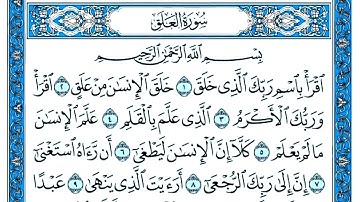 سُورَةُ العَلَقِ
بِسْمِ اللَّهِ الرَّحْمَٰنِ الرَّحِيمِ
ٱقْرَأْ بِٱسْمِ رَبِّكَ ٱلَّذِى خَلَقَ ١ خَلَقَ ٱلْإِنسَٰنَ مِنْ عَلَقٍ ٢ ٱقْرَأْ
وَرَبُّكَ ٱلْأَكْرَمُ ٣ ٱلَّذِى عَلَّمَ بِٱلْقَلَمِ ٤ عَلَّمَ ٱلْإِنسَٰنَ
مَا لَمْ يَعْلَمْ ٥ كَلَّآ إِنَّ ٱلْإِنسَٰنَ لَيَطْغَىٰٓ ٦ أَن رَّءَاهُ ٱسْتَغْنَىٰٓ
٧ إِنَّ إِلَىٰ رَبِّكَ ٱلرُّجْعَىٰٓ ٨ أَرَءَيْتَ ٱلَّذِى يَنْهَىٰ ٩ عَبْدًا